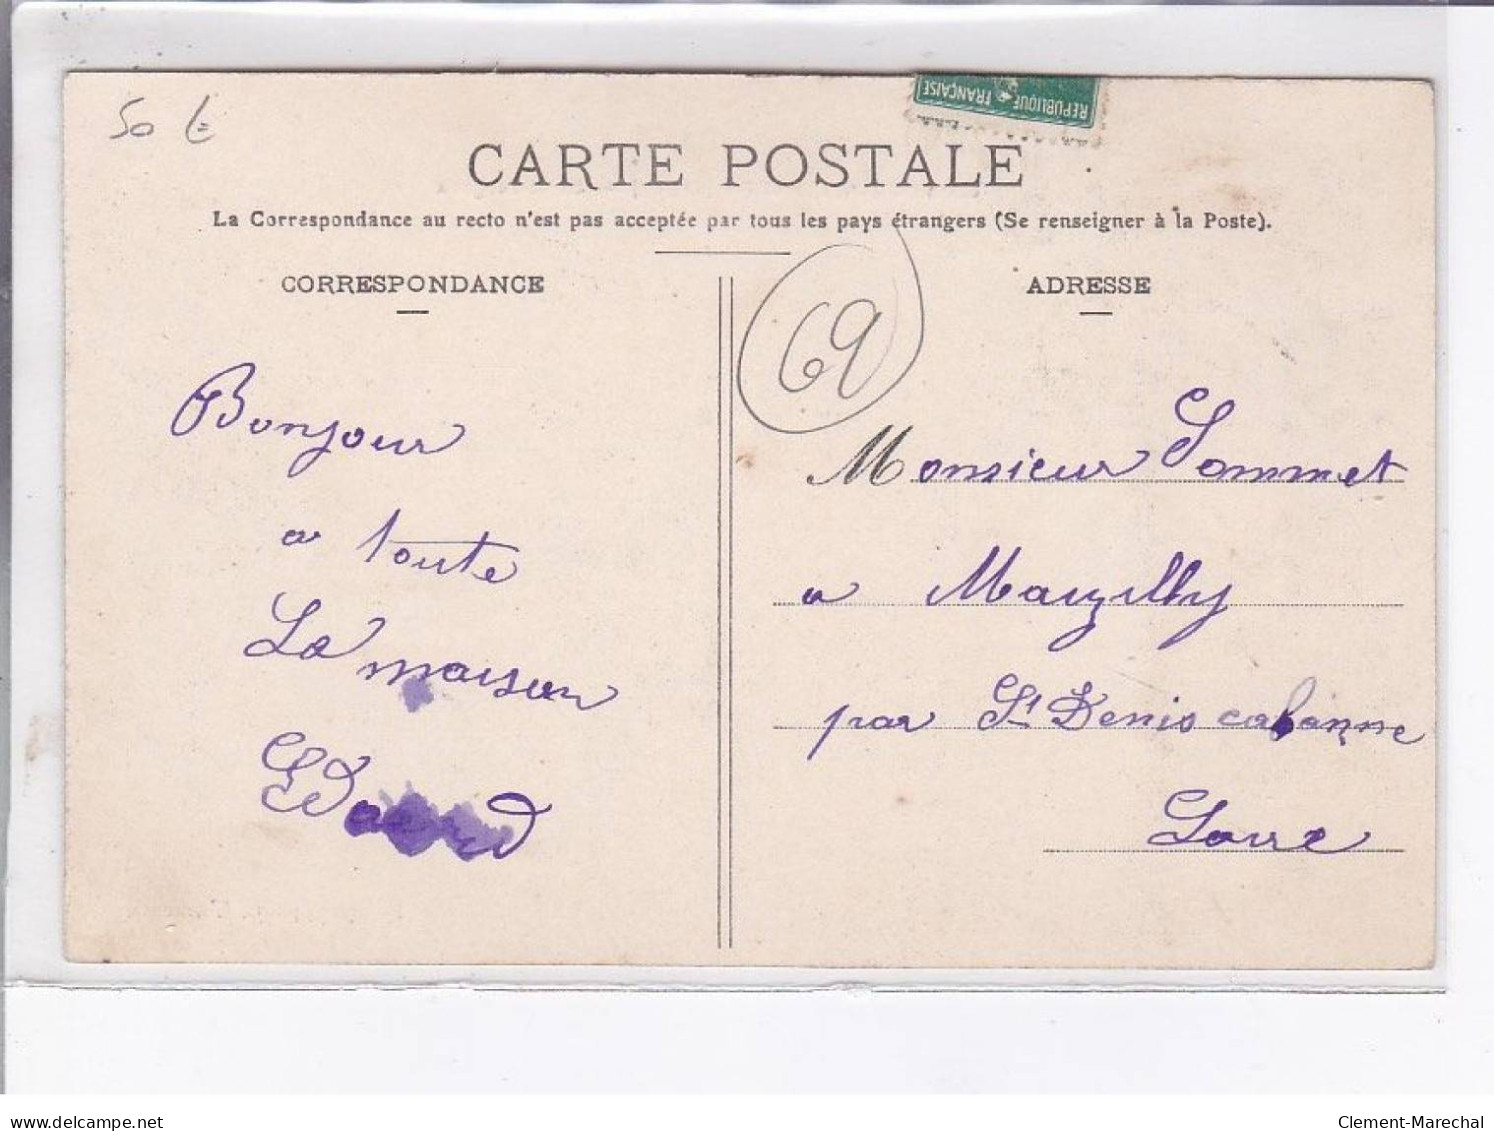 50 €
REPUBLIQUE FRANÇAISE
CARTE POSTALE
La Correspondance au recto n'est pas acceptée par tous les pays étrangers (Se renseigner à la Poste).
CORRESPONDANCE
Bonjour
a toute
La maison
ADRESSE
69
Monsieur Sommet
a Marzilly
par St Denis cabanne
Loire
delcampe.net
Clement-Marechal